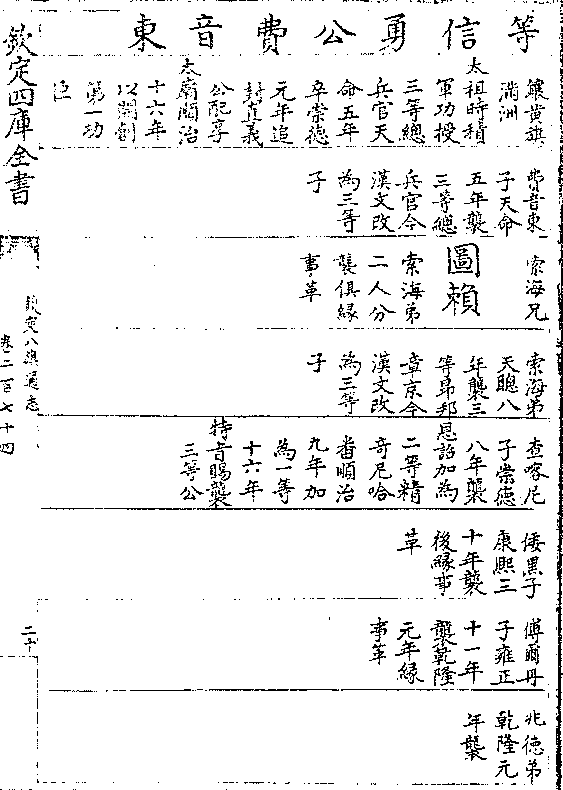 等信勇公費音東
鑲黃旗
滿洲
太祖時積
軍功授
三等總
兵官天
命五年
卒崇德
元年追
封直義
公配享
太廟順治
十六年
以開創
第一功
臣
費音東
子天命
五年襲
三等總
兵官今
漢文改
為三等
子
索海兄
圖賴
索海弟
二人分
襲俱緣
事革
索海弟
天聰八
年襲三
等昂邦
章京今
漢文改
為三等
子
查喀尼
子崇德
八年襲
恩詔加為
二等精
奇尼哈
番順治
九年加
為一等
十六年
特旨賜襲
三等公
倭黑子
康熙三
十年襲
後緣事
革
傅爾丹
子雍正
十一年
襲乾隆
元年緣
事革
兆德弟
乾隆元
年襲
欽定四庫全書
欽定八旗通志
卷二百七十四
二十